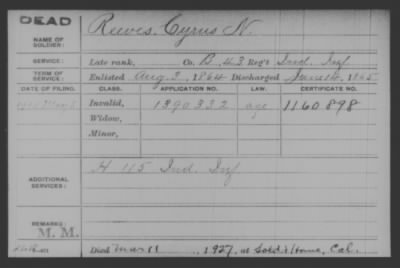 DEAD
NAME OF SOLDIER: Reeves, Cyrus N.
SERVICE: Late rank, Co. B, 43 Reg't Ind. Inf
TERM OF SERVICE: Enlisted Aug. 3, 1864 Discharged June 14, 1865
DATE OF FILING. CLASS. APPLICATION NO. LAW. CERTIFICATE NO.
May Invalid, 1390332 age 1160898
Widow,
Minor,
ADDITIONAL SERVICES: H 115 Ind. Inf
REMARKS:
M. M.
Died Mar 11, 1927, at Sold. Home, Cal.